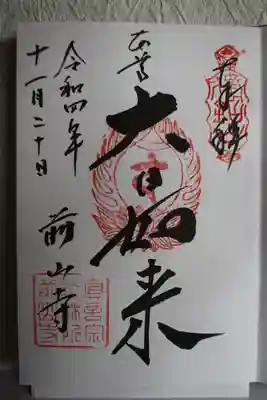 奉拝
本尊
大日如来
令和四年
十一月二十日
前山寺